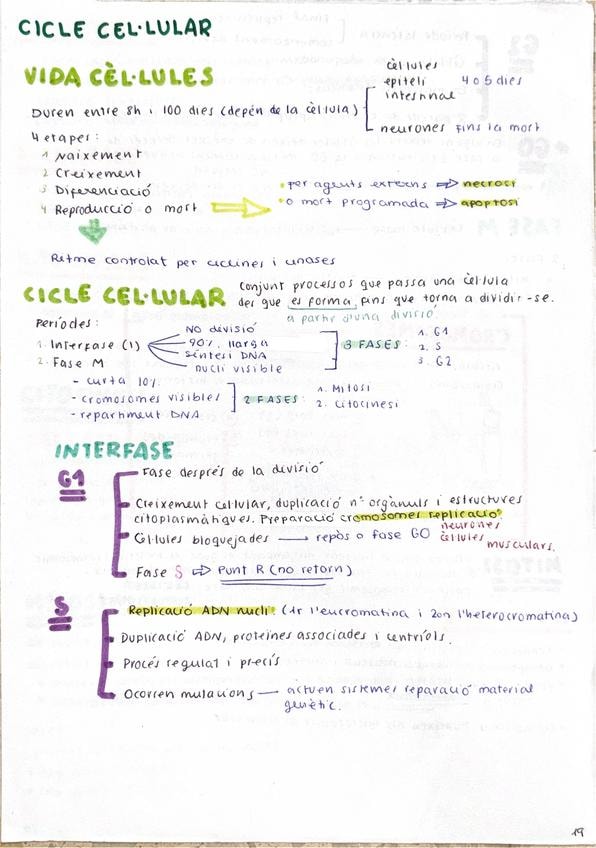 CICLE CEL·LULAR
VIDA CÈL·LULES
Duren entre 8h i 100 dies (depèn de la cèl·lula)
Cèl·lules
epiteli 4 o 5 dies
intestinal
neurones fins la mort
4 etapes:
1 Naixement
2 Creixement
3 Diferenciació
4 Reproducció o mort
· per agents externs ⇒ necrosi
· o mort programada ⇒ apoptosi
Ritme controlat per ciclines i cinases
CICLE CEL·LULAR conjunt processos que passa una cèl·lula
des que es forma fins que torna a dividir-se.
a partir d'una divisió.
Períodes:
1. Interfase (I)
2. Fase M
NO divisió
90% llarga
Síntesi DNA
nucli visible
3 FASES:
1. G1
2. S
3. G2
- curta 10%
- cromosomes visibles
- repartiment DNA
2 FASES:
1. Mitosi
2. Citocinesi
INTERFASE
G1
Fase després de la divisió
Creixement cel·lular, duplicació nº orgànuls i estructures
citoplasmàtiques. Preparació cromosomes replicació
Cèl·lules bloquejades → repòs o fase G0
neurones
cèl·lules
musculars.
Fase S ⇒ Punt R (no retorn)
S
Replicació ADN nucli (1r l'eucromatina i 2on l'heterocromatina)
Duplicació ADN, proteïnes associades i centríols.
Procés regulat i precís
Ocorren mutacions — actuen sistemes reparació material
genètic.
19